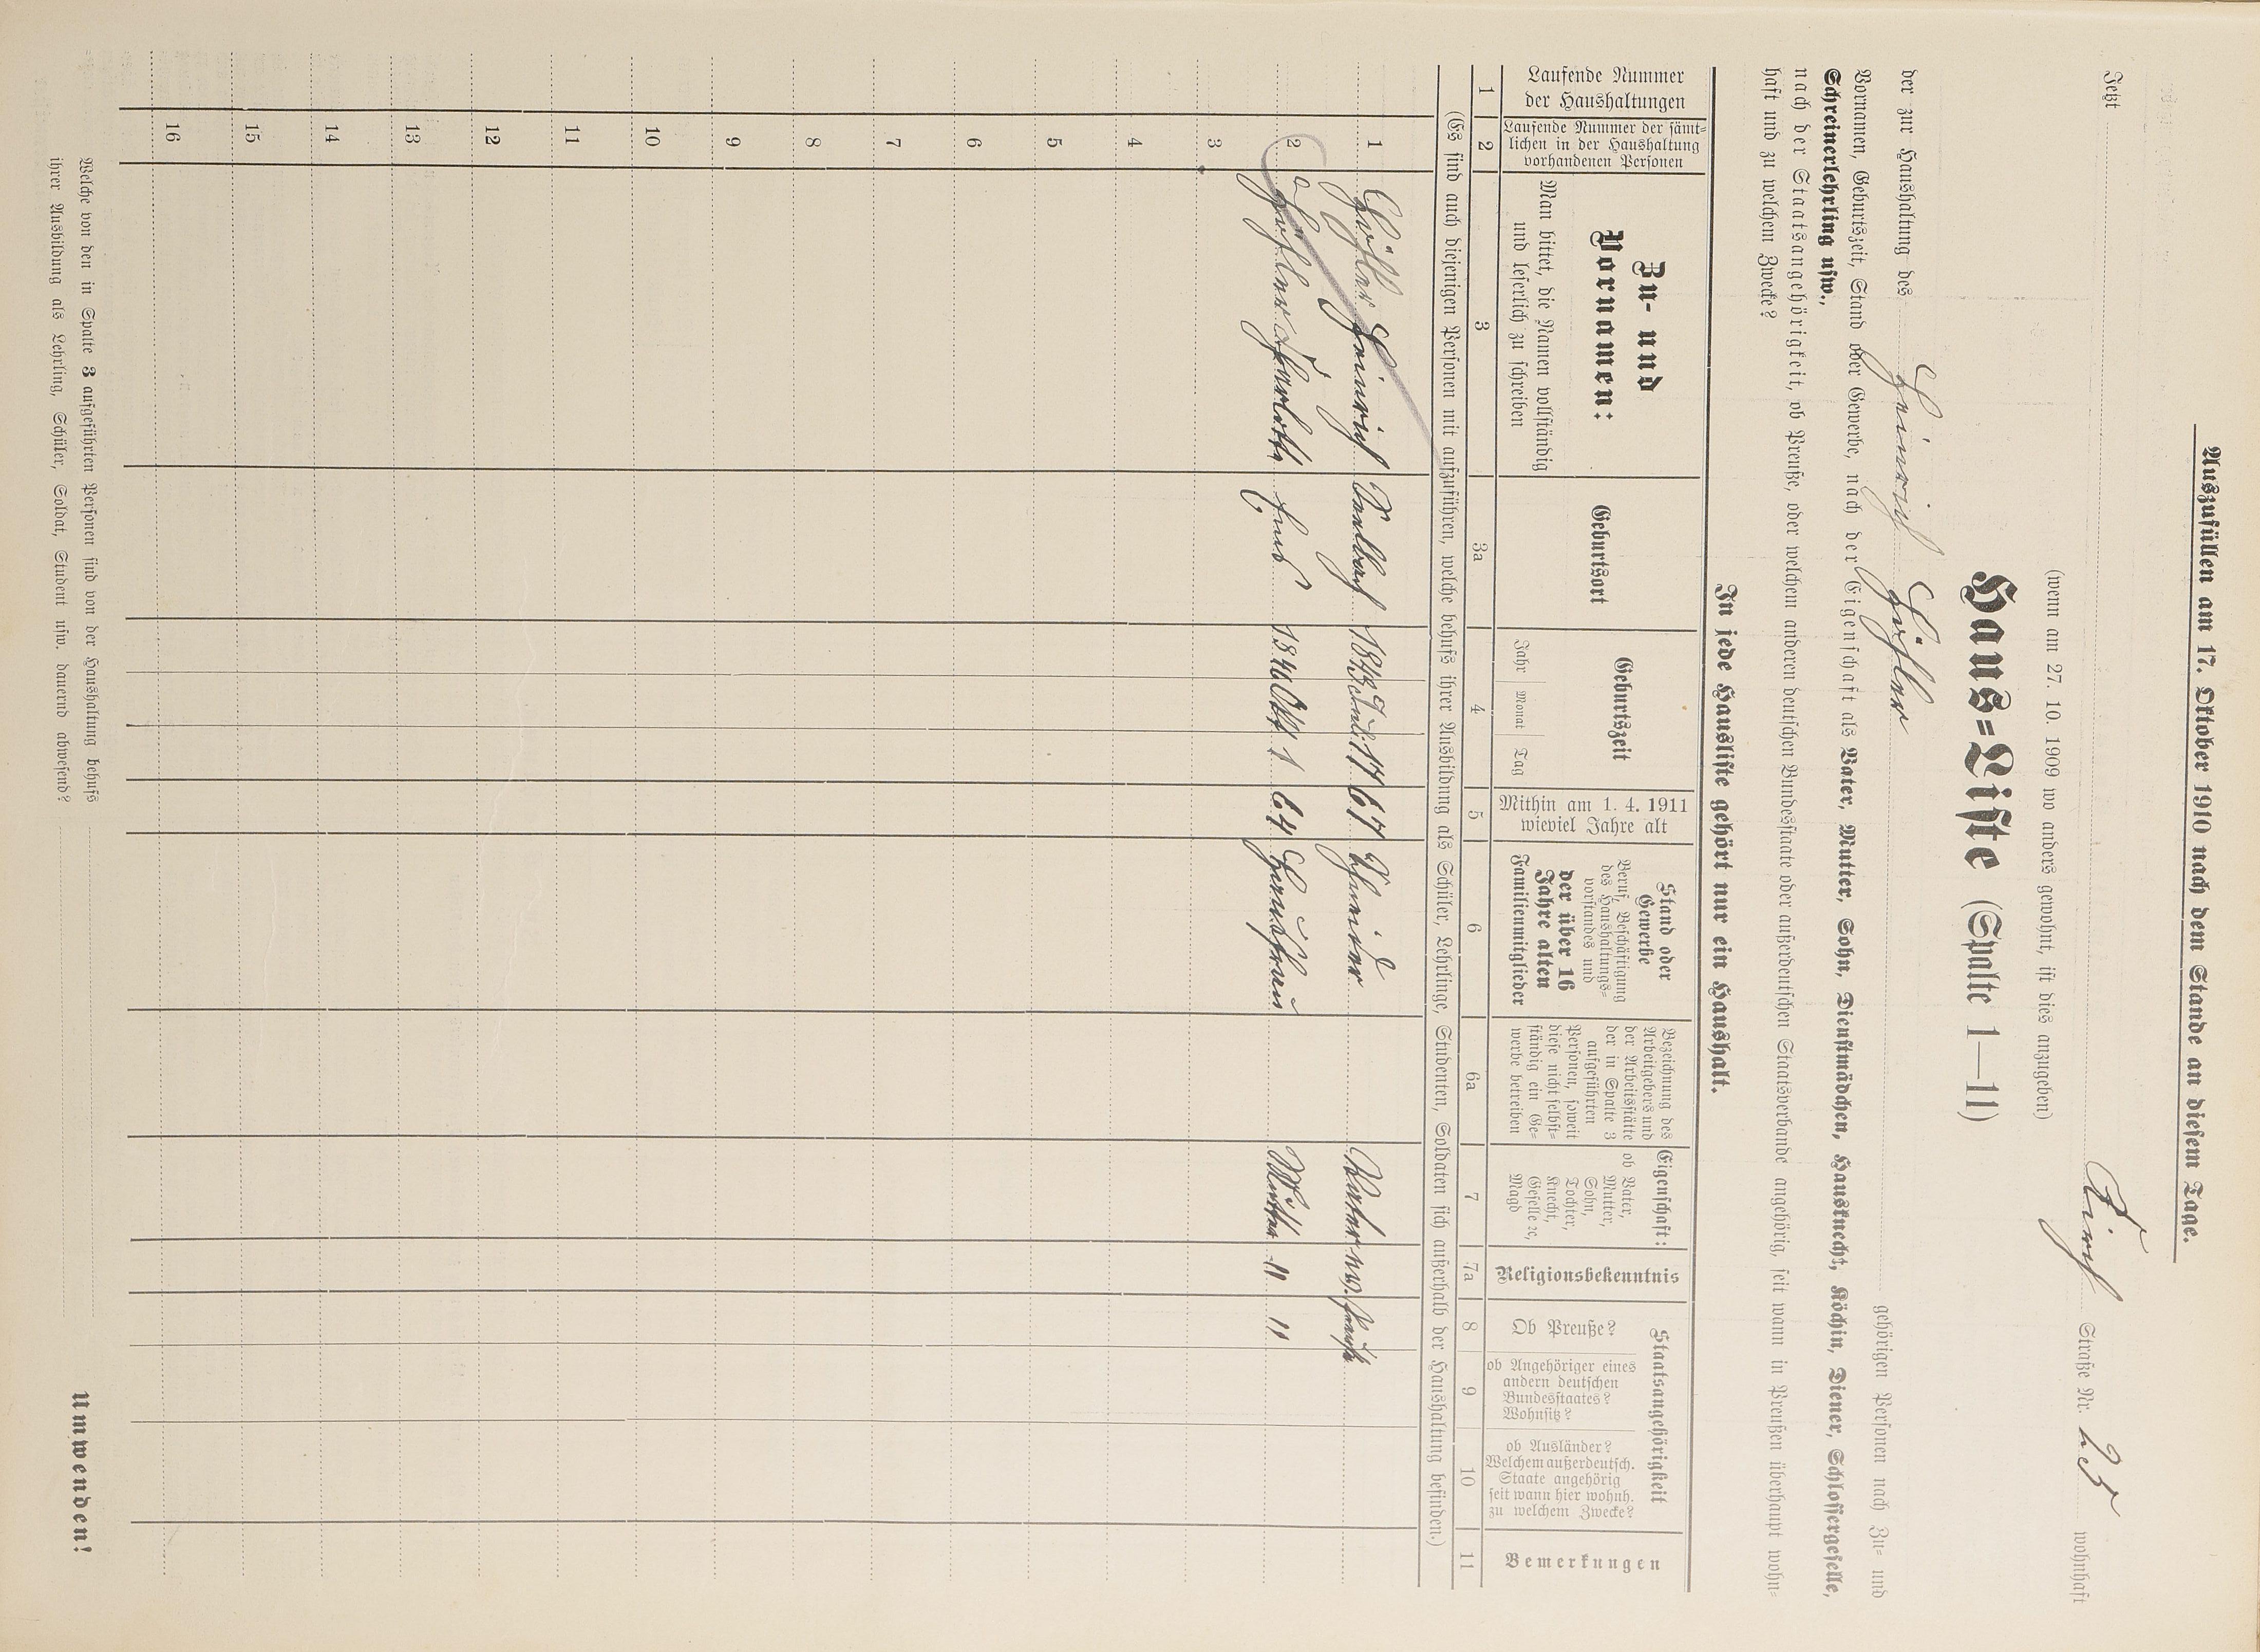 Auszufüllen am 17. Oktober 1910 nach dem Stande an diesem Tage.
Jetzt Kirch Straße Nr. 23 wohnhaft
(wenn am 27. 10. 1909 wo anders gewohnt, ist dies anzugeben)
Haus-Liste (Spalte 1—11)
der zur Haushaltung des Heinrich gehörigen Personen nach Zu- und
Vornamen, Geburtszeit, Stand oder Gewerbe, nach der Eigenschaft als Vater, Mutter, Sohn, Dienstmädchen, Hausknecht, Köchin, Diener, Schlossergeselle,
Schreinerlehrling usw.,
nach der Staatsangehörigkeit, ob Preuße, oder welchem anderen deutschen Bundesstaate oder außerdeutschen Staatsverbande angehörig, seit wann in Preußen überhaupt wohn-
haft und zu welchem Zwecke?
In jede Hausliste gehört nur ein Haushalt.
Laufende Nummer
der Haushaltungen
Laufende Nummer der sämt-
lichen in der Haushaltung
vorhandenen Personen
Zu- und
Vornamen:
Man bittet, die Namen vollständig
und leserlich zu schreiben
Geburtsort
Geburtszeit
Jahr Monat Tag
Mithin am 1. 4. 1911
wieviel Jahre alt
Stand oder
Gewerbe
Beruf, Beschäftigung
des Haushaltungs-
vorstandes und
der über 16
Jahre alten
Familienmitglieder
Bezeichnung des
Arbeitgebers und
der Arbeitsstätte
der in Spalte 3
aufgeführten
Personen, soweit
diese nicht selbst-
ständig ein Ge-
werbe betreiben
Eigenschaft:
ob Vater,
Mutter,
Sohn,
Tochter,
Knecht,
Geselle ꝛc,
Magd
Religionsbekenntnis
Staatsangehörigkeit
Ob Preuße?
ob Angehöriger eines
andern deutschen
Bundesstaates?
Wohnsitz?
ob Ausländer?
Welchem außerdeutsch.
Staate angehörig
seit wann hier wohnh.
zu welchem Zwecke?
Bemerkungen
1 2 3 3a 4 5 6 6a 7 7a 8 9 10 11
(Es sind auch diejenigen Personen mit aufzuführen, welche behufs ihrer Ausbildung als Schüler, Lehrlinge, Studenten, Soldaten sich außerhalb der Haushaltung befinden.)
1 Heinrich 1843 Juli 17 67 Schneider Vater ev.
2 Charlotte 1846 Okt 1 64 Hausfrau Mutter " "
3
4
5
6
7
8
9
10
11
12
13
14
15
16
Welche von den in Spalte 3 aufgeführten Personen sind von der Haushaltung behufs
ihrer Ausbildung als Lehrling, Schüler, Soldat, Student usw. dauernd abwesend?
Umwenden!